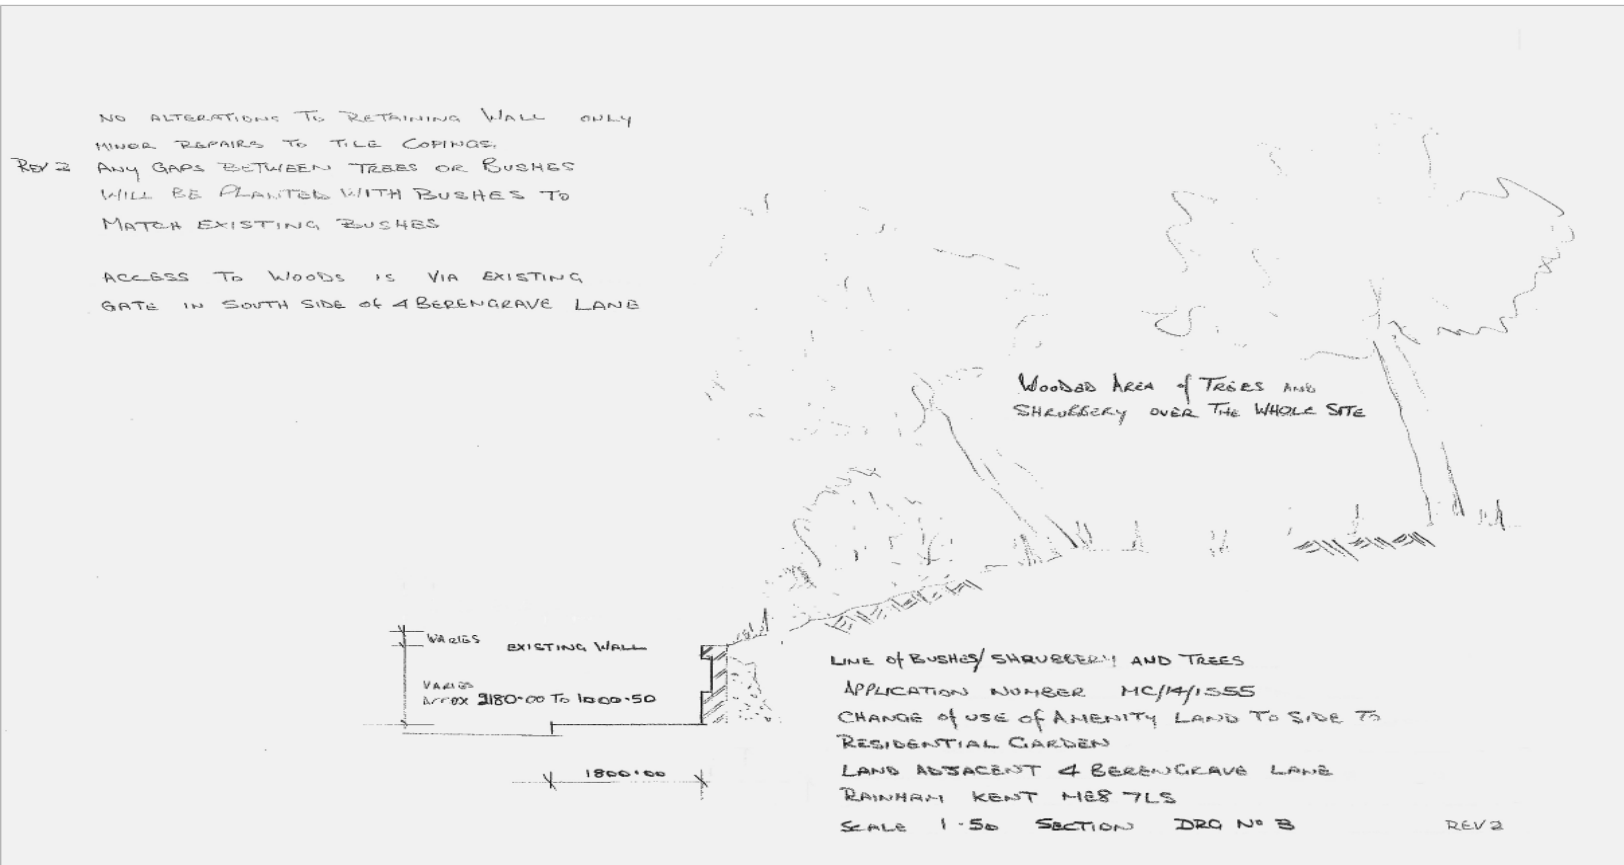 NO ALTERATIONS TO RETAINING WALL ONLY
MINOR REPAIRS TO TILE COPINGS.
REV 2 ANY GAPS BETWEEN TREES OR BUSHES
WILL BE PLANTED WITH BUSHES TO
MATCH EXISTING BUSHES
ACCESS TO WOODS IS VIA EXISTING
GATE IN SOUTH SIDE OF 4 BERENGRAVE LANE
WOODED AREA of TREES AND
SHRUBBERY OVER THE WHOLE SITE
VARIES
EXISTING WALL
VARIES
APPROX 2180.00 TO 1000.50
1800.00
LINE of BUSHES/SHRUBBERY AND TREES
APPLICATION NUMBER MC/14/1555
CHANGE of USE of AMENITY LAND TO SIDE TO
RESIDENTIAL GARDEN
LAND ADJACENT 4 BERENGRAVE LANE
RAINHAM KENT ME8 7LS
SCALE 1.50 SECTION DRG No 3
REV 2